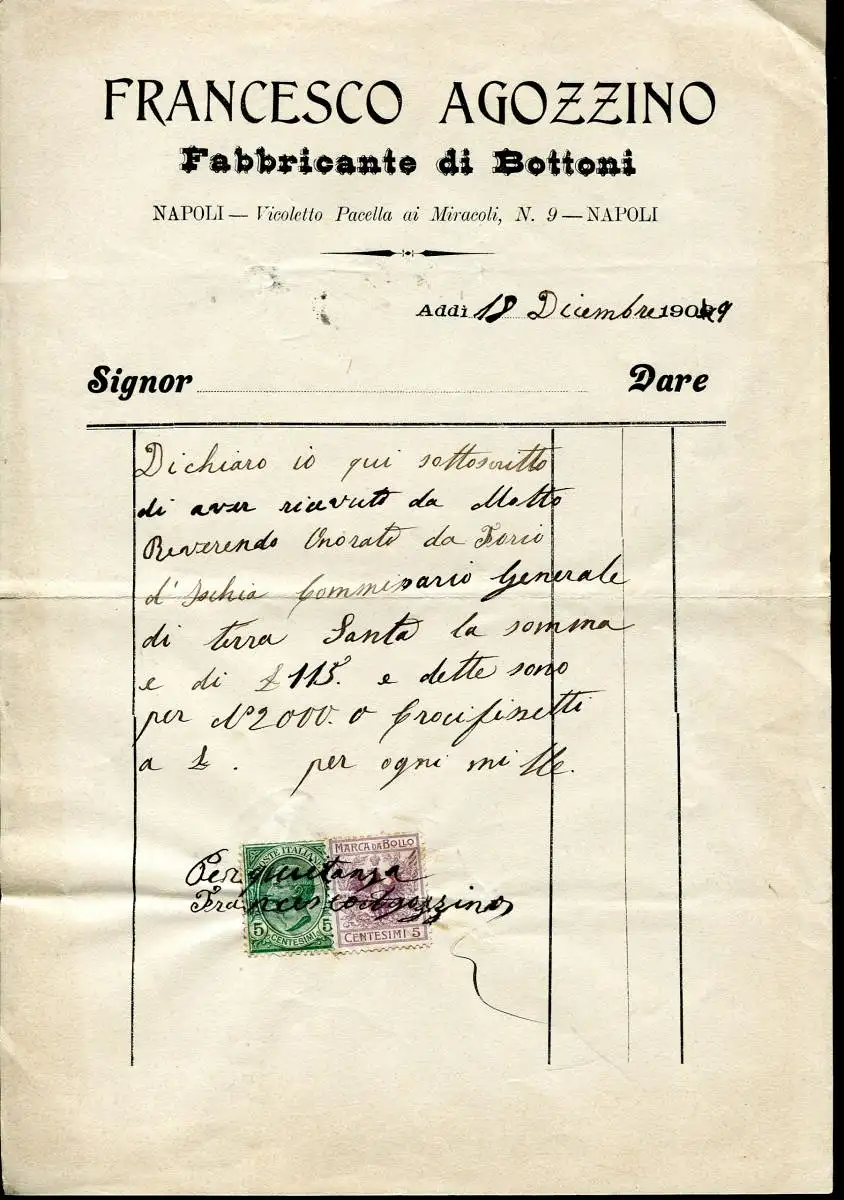 FRANCESCO AGOZZINO
Fabbricante di Bottoni
NAPOLI — Vicoletto Pacella ai Miracoli, N. 9 — NAPOLI
Addì 18 Dicembre 1909
Signor Dare
Dichiaro io qui sottoscritto
di aver ricevuto da Molto
Reverendo Onorato da Forio
d'Ischia Commissario Generale
di terra Santa la somma
e di £ 115. e dette sono
per N° 2000. Crocifissetti
a £. per ogni mille.
POSTE ITALIANE
MARCA DA BOLLO
Per quietanza
Francesco Agozzino
5 CENTESIMI 5
CENTESIMI 5